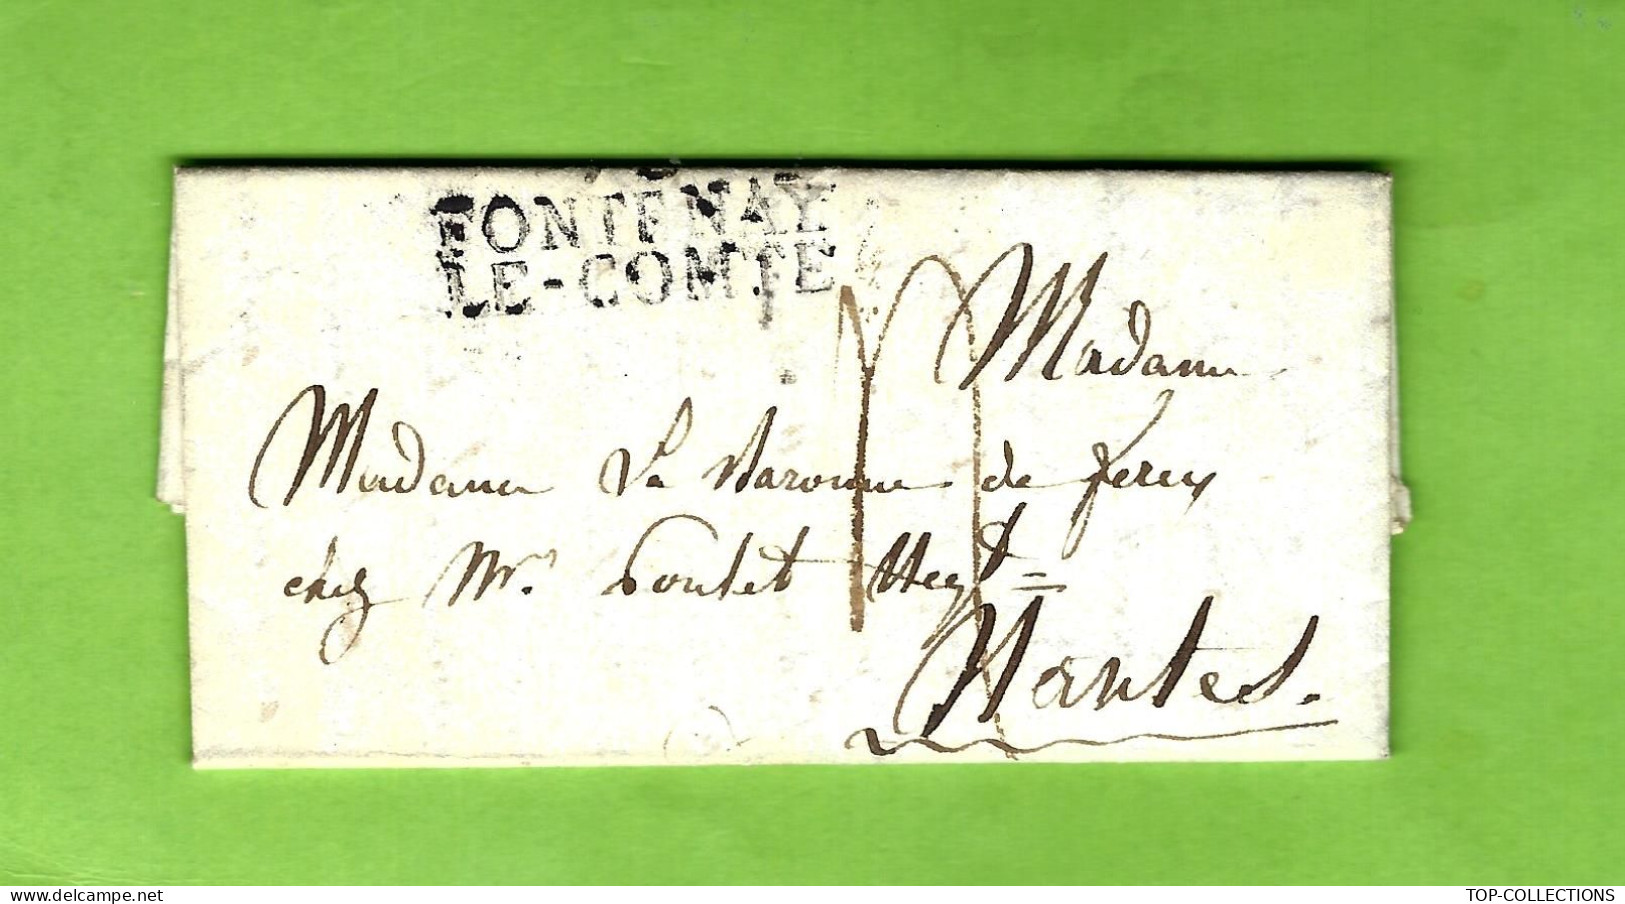 FONTENAY
LE-COMTE
Madame
Madame La Baronne de Ferey
chez Mr. Poulet Negt =
Nantes.
TOP-COLLECTIONS